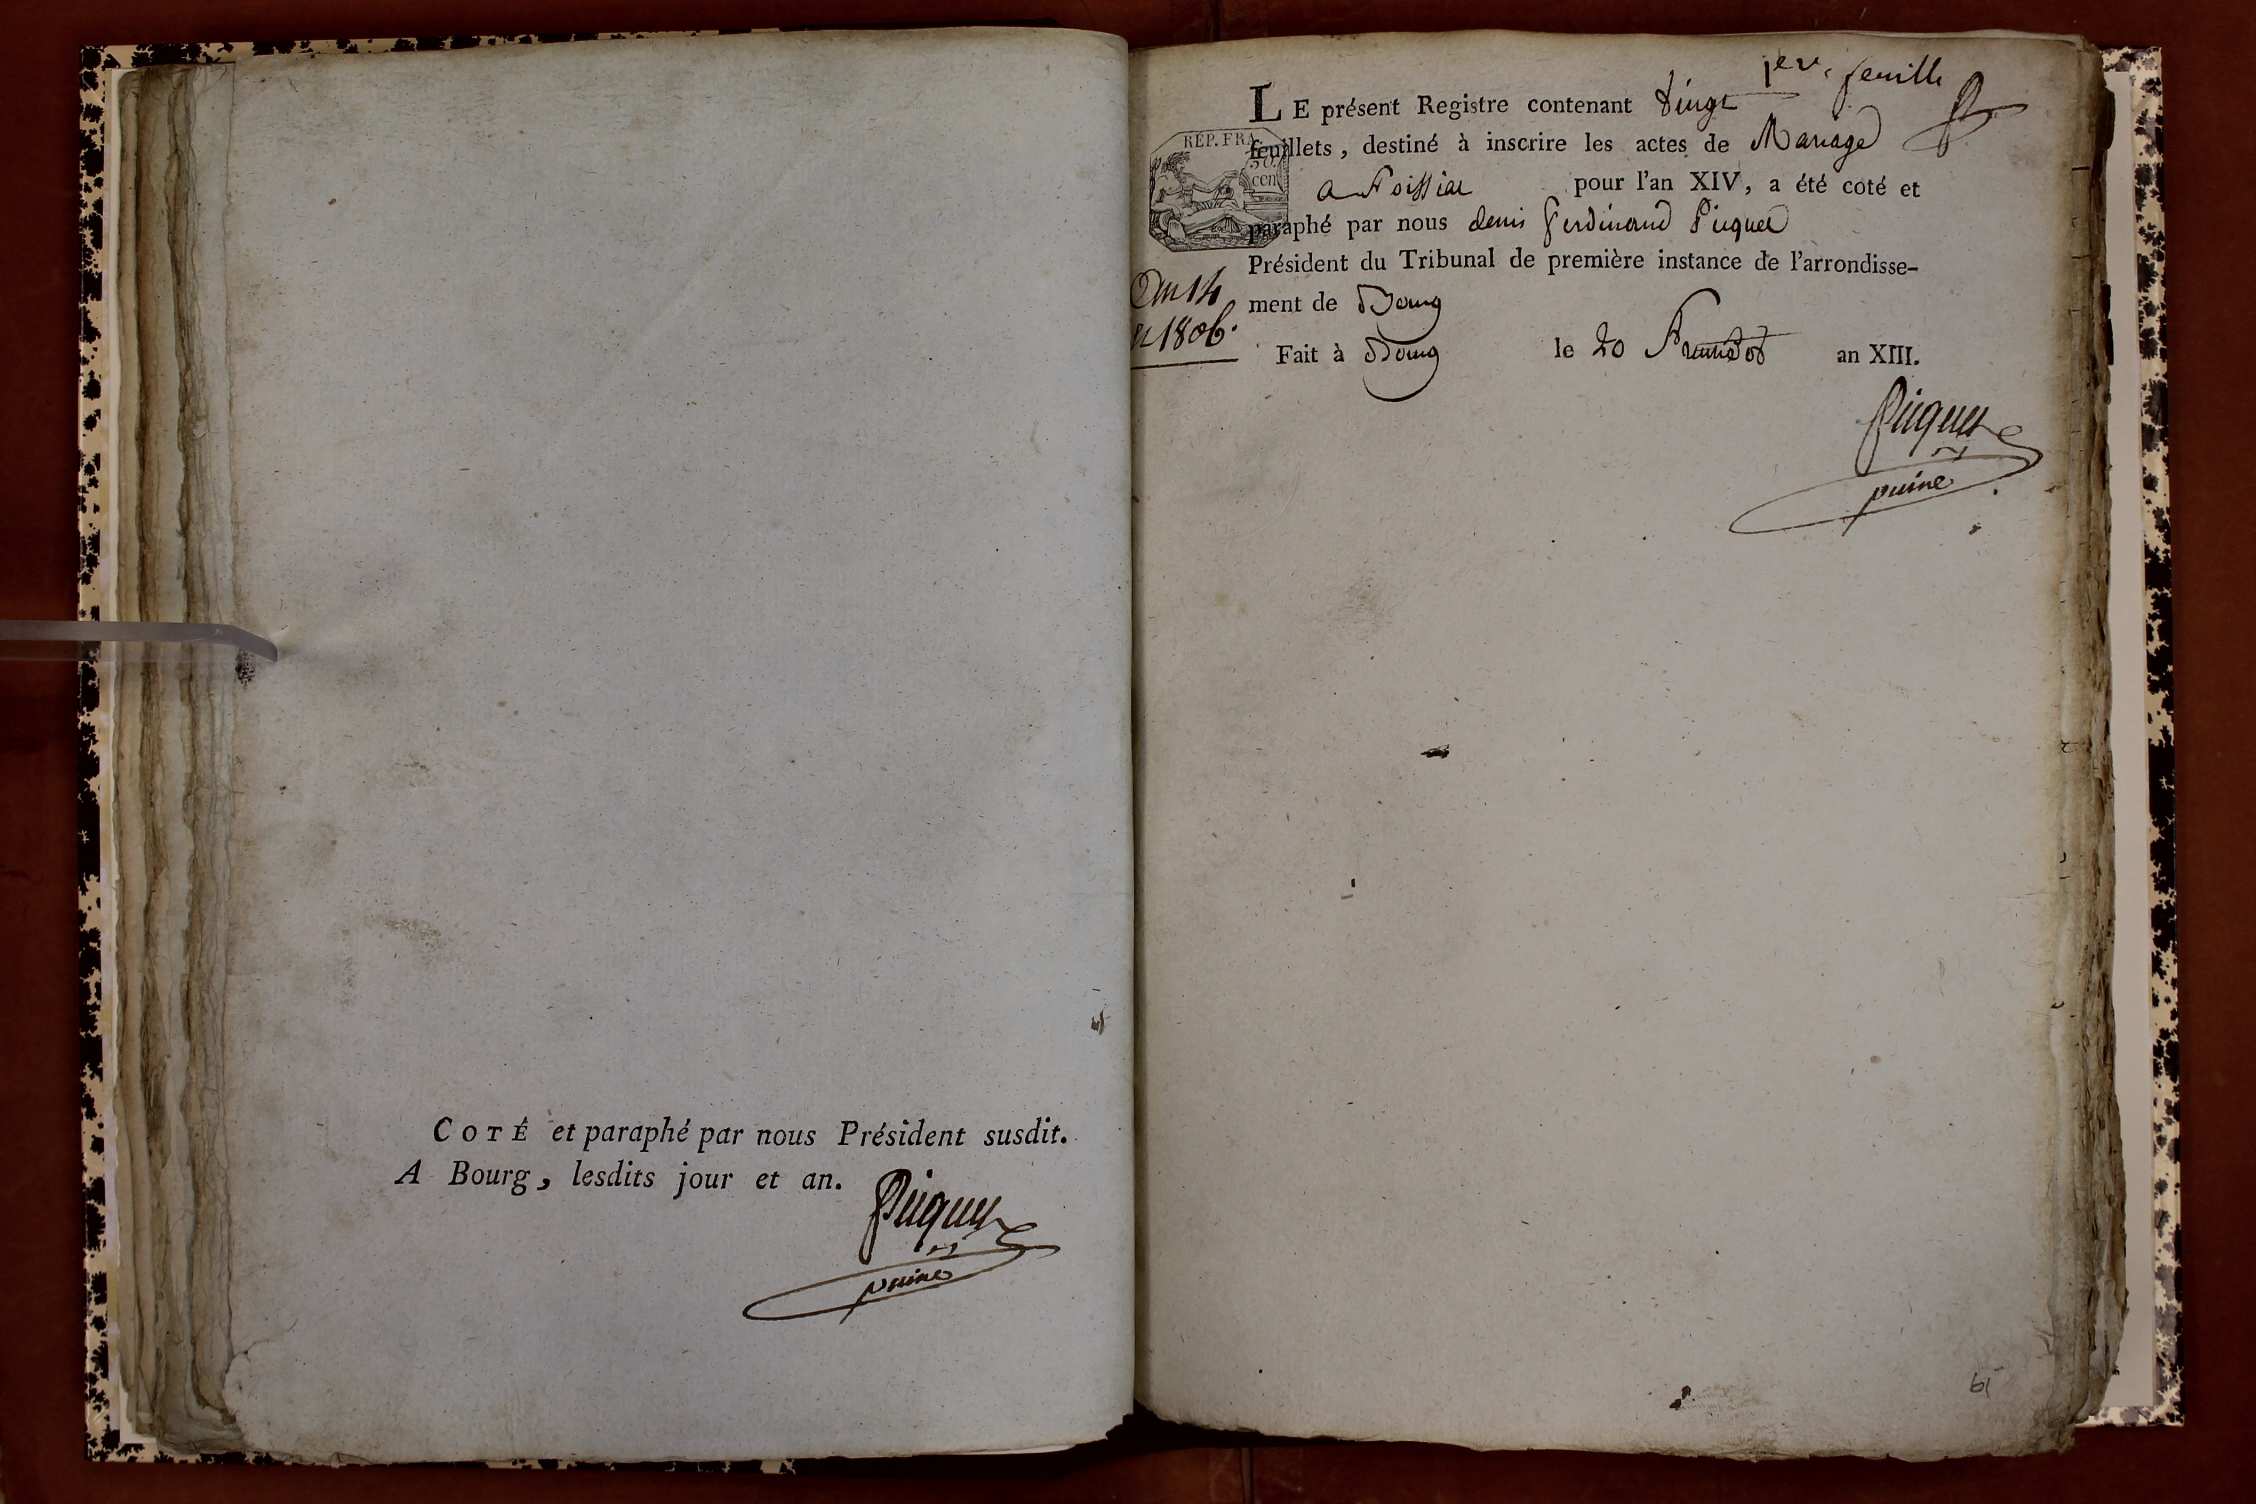 COTÉ et paraphé par nous Président susdit.
A Bourg, lesdits jour et an.
Picquet
puiné
1ere feuille
LE présent Registre contenant vingt
feuillets, destiné à inscrire les actes de Mariage
a Foissiat pour l'an XIV, a été coté et
paraphé par nous denis ferdinand Picquet
Président du Tribunal de première instance de l'arrondisse-
ment de Bourg
Fait à Bourg le 20 fructidor an XIII.
RÉP. FRA
50
cen
an 14
et 1806.
Picquet
puiné
61